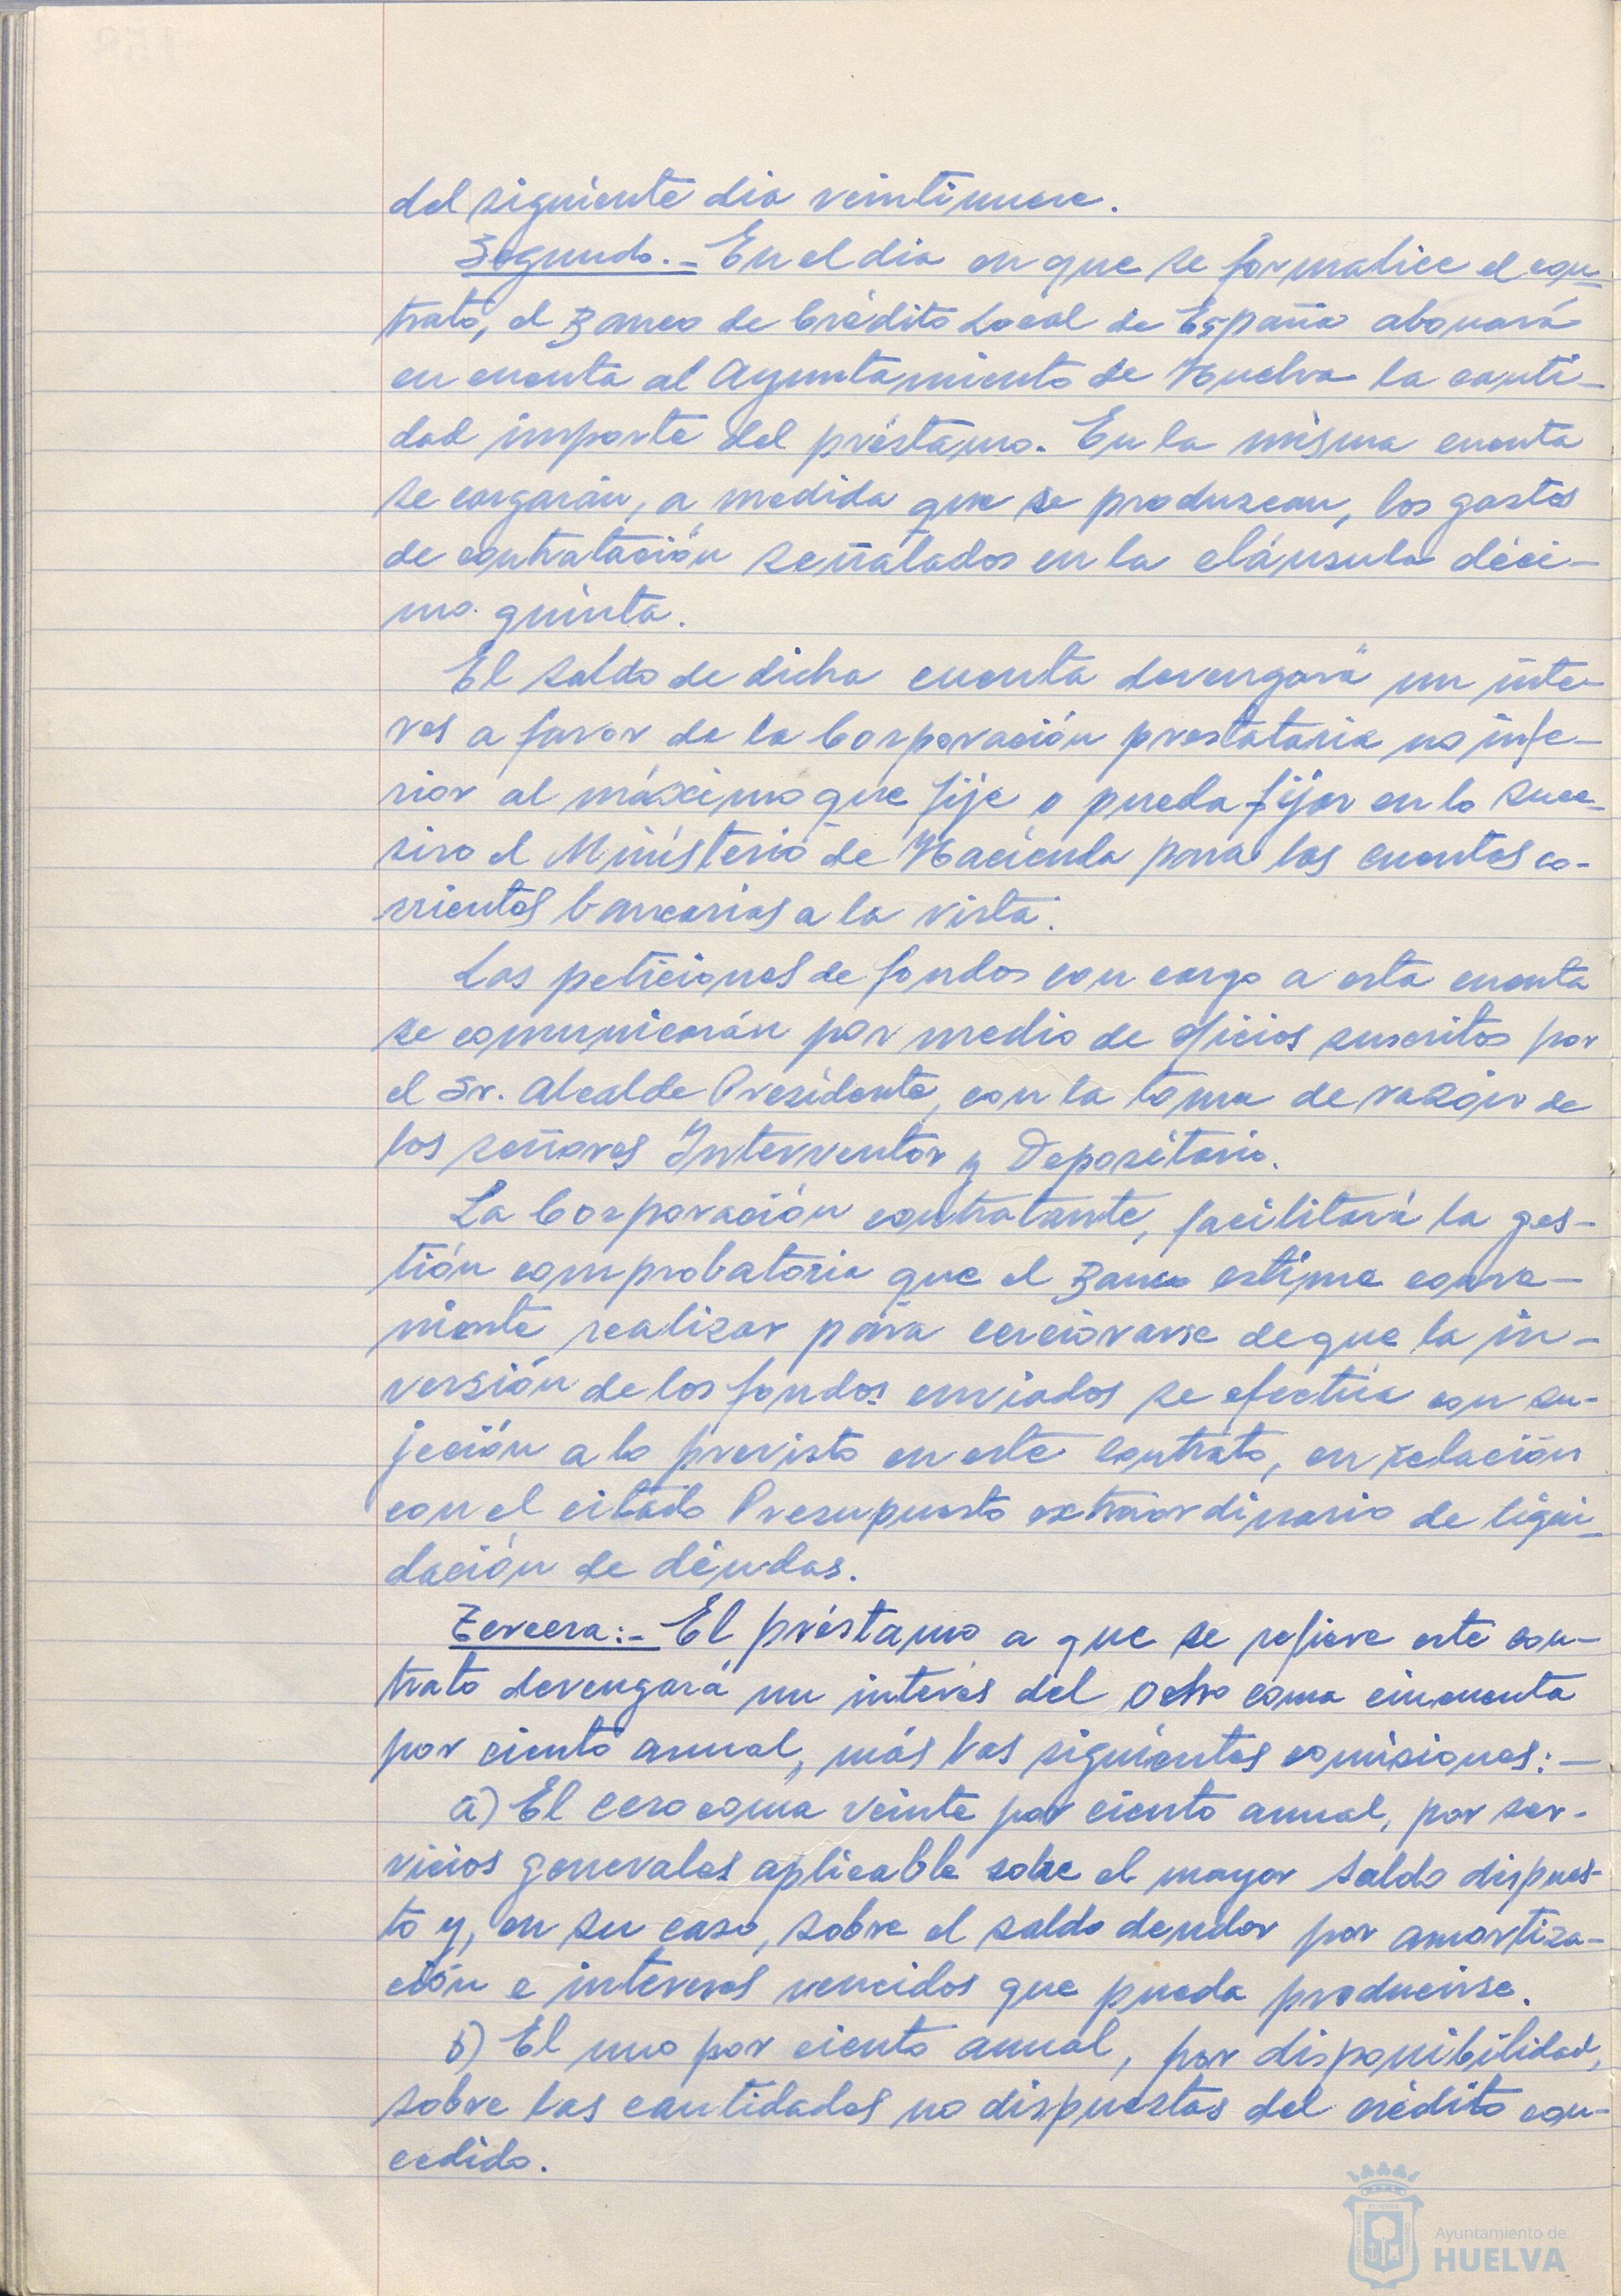 del siguiente dia veintinueve.
Segundo.- En el dia en que se formalice el con-
trato, el Banco de Crédito Local de España abonará
en cuenta al Ayuntamiento de Huelva la canti-
dad importe del préstamo. En la misma cuenta
se cargarán, a medida que se produzcan, los gastos
de contratación señalados en la cláusula déci-
mo quinta.
El saldo de dicha cuenta devengará un inte-
res a favor de la Corporación prestataria no infe-
rior al máximo que fije o pueda fijar en lo suce-
sivo el Ministerio de Hacienda para las cuentas co-
rrientes bancarias a la vista.
Las peticiones de fondos con cargo a esta cuenta
se comunicarán por medio de oficios suscritos por
el Sr. Alcalde Presidente, con la toma de razón de
los señores Interventor y Depositario.
La Corporación contratante, facilitará la ges-
tión comprobatoria que el Banco estime conve-
niente realizar para cerciorarse de que la in-
versión de los fondos enviados se efectúa con su-
jeción a lo previsto en este contrato, en relación
con el citado Presupuesto extraordinario de liqui-
dación de déudas.
Tercera:- El préstamo a que se refiere este con-
trato devengará un interés del ocho coma cincuenta
por ciento anual, más las siguientes comisiones:-
a) El cero coma veinte por ciento anual, por ser-
vicios generales aplicable sobre el mayor saldo dispues-
to y, en su caso, sobre el saldo deudor por amortiza-
ción e intereses vencidos que pueda producirse.
b) El uno por ciento anual, por disponibilidad,
sobre las cantidades no dispuestas del crédito con-
cedido.
Ayuntamiento de
HUELVA